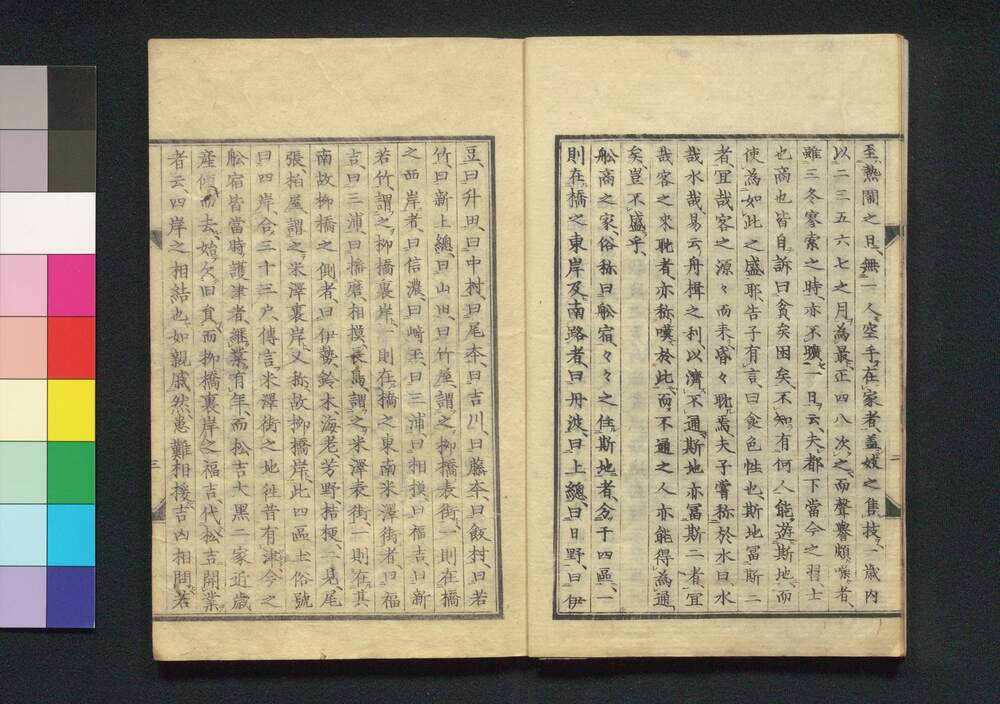 至、熱鬧之日、無一人空手在家者、盖妓之售技、一歳内
以二三五六七之月為最、正四八次之、而聲譽頗噪者、
雖三冬寒索之時、亦不曠一日云、夫都下當今之習、士
也商也皆自訴曰貧矣困矣、不知有何人能遊斯地、而
使為如此之盛耶、告子有言、曰食色性也、斯地冨斯二
者、宜哉客之源々而来、昏々耽焉、夫子嘗称於水曰、水
哉水哉、易云舟楫之利、以濟不通、斯地亦冨斯二者、宜
哉客之來耽者、亦称嘆於此、而不通之人亦能得為通
矣、豈不盛乎、
舩商之家、俗称曰舩宿、々々之住斯地者、分于四區、一
則在橋之東岸及南路者、曰丹波、曰上總、曰日野、曰伊
豆、曰升田、曰中村、曰尾本、曰吉川、曰藤本、曰飯村、曰若
竹、曰新上總、曰山田、曰竹屋、謂之柳橋表街、一則在橋
之西岸者、曰信濃、曰﨑玉、曰三浦、曰相摸、曰福吉、曰新
若竹、謂之柳橋裏岸、一則在橋之東南米澤街者、曰福
吉、曰三浦、曰播磨、相摸、長島、謂之米澤表街、一則在其
南故柳橋之側者、曰伊勢、鈴木、海老、芳野、桔梗、二見、尾
張、柏屋、謂之米澤裏岸、又称故柳橋岸、此四區土俗號
曰四岸、合三十三戸、傳言、米澤街之地往昔有津、今之
舩宿皆當時護津者、継業有年、而松吉大黒二家近歳
産傾而去、始欠旧員、而柳橋裏岸之福吉、代松吉開業、
者云、四岸之相結也、如親戚然、患難相援、吉凶相問、若
二
三